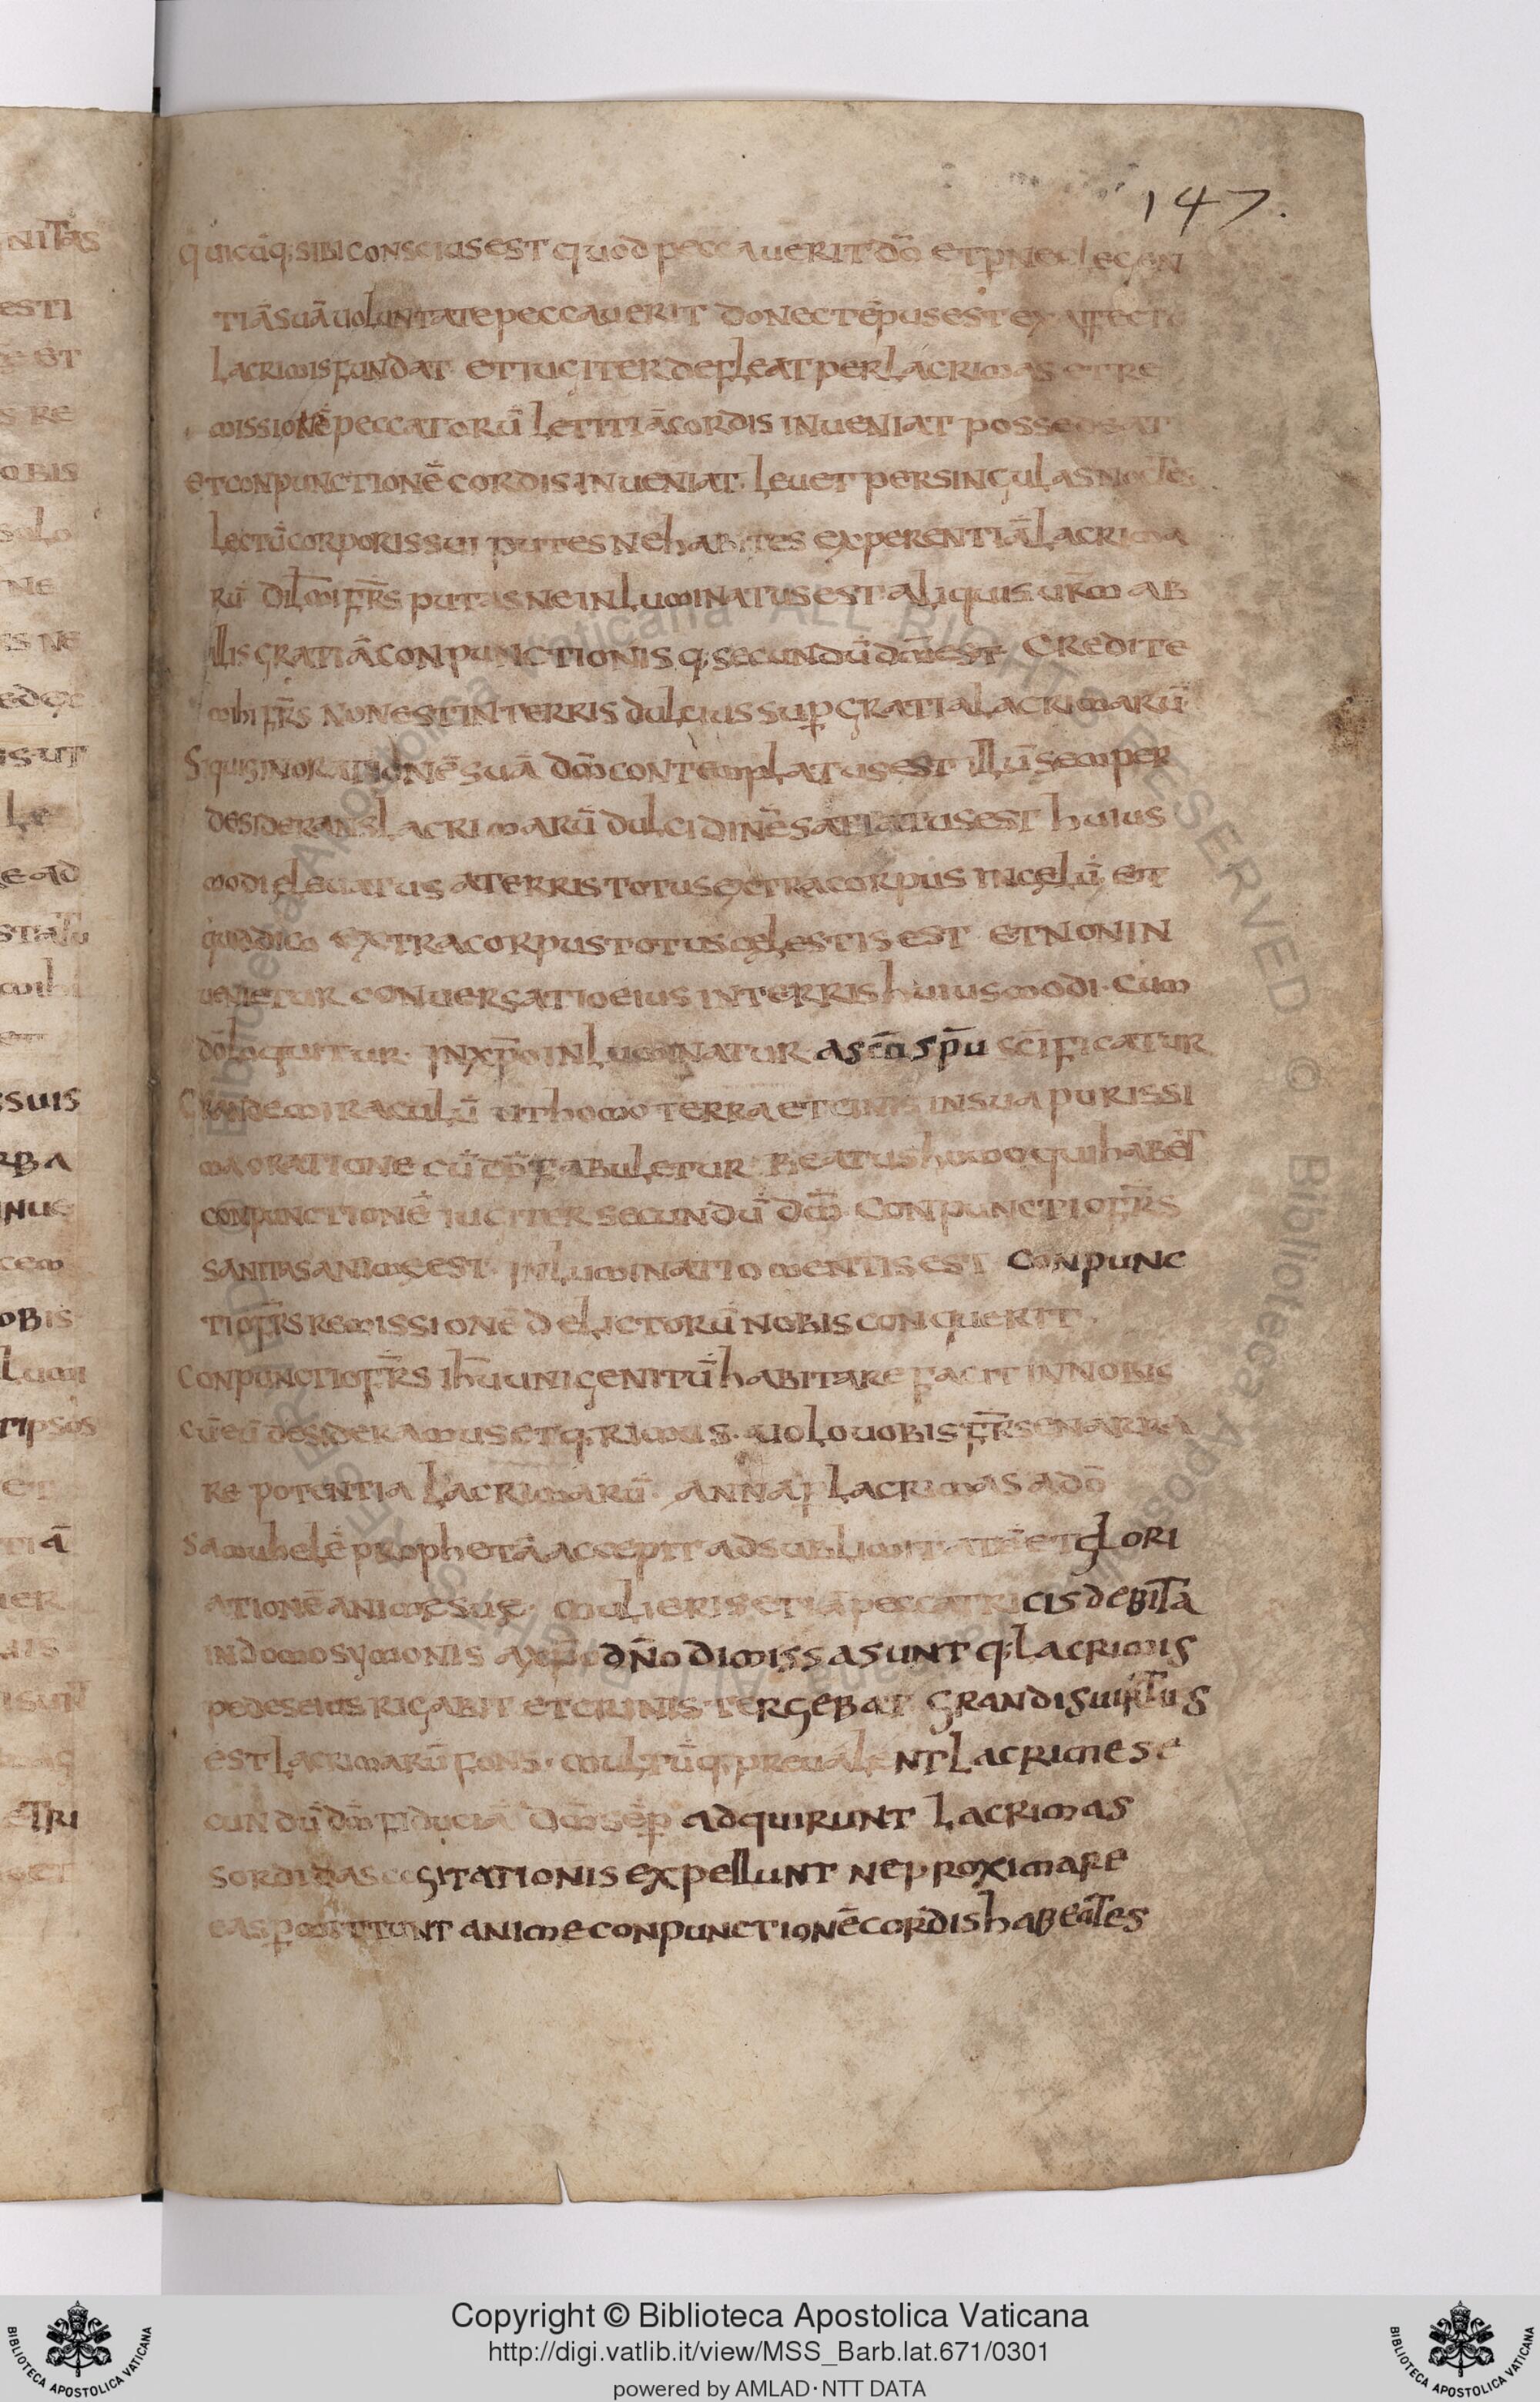 147.
quicūq; sibi conscius est quod peccauerit dō et p neclegen
tiā suā uoluntate peccauerit donec tēpus est ex affectu
lacrimis fundat et iugiter defleat per lacrimas et re
missionē peccatorū letitiā cordis inueniat
et conpunctionē cordis inueniat. leuet per singulas noctes
lectū corporis sui putes ne habites experentiā lacrima
rū dil̄mi fr̄s putasne inluminatus est aliquis ur̄m ab
illis gratiā conpunctionis q; secundū dm̄ est Credite
mihi fr̄s non est in terris dulcius sup gratia lacrimarū
Si quis in orationē suā dm̄ contemplatus est illū semper
desiderans lacrimarū dulcidinē satiatus est huius
modi eleuatus a terris totus extra corpus in cęlū et
quod dico extra corpus totus cęlestis est et non in
uenietur conuersatio eius in terris huiusmodi. Cum
dō loquitur. in xp̄o inluminatur a sc̄m sp̄u scīficatur
Grande miraculū ut homo terra et cinis in sua purissi
ma oratione cū dō fabuletur Beatus homo qui habet
conpunctionē iugiter secundū dm̄. Conpunctio fr̄s
sanitas animę est. inluminatio mentis est Conpunc
tio fr̄s remissionē delictorū nobis conquerit.
Conpunctio fr̄s ih̄u unigenitū habitare facit in nobis
cū eū desideramus et q;rimus. uolo uobis fr̄s enarra
re potentia lacrimarū. anna p lacrimas a dō
samuhelē prophetā accepit ad sublimitatē et glori
ationē animę suę. mulieris etiā peccatricis debita
in domo symonis a xp̄o dn̄o dimissa sunt q; lacrimis
pedes eius rigabit et crinis tergebat grandis uirtus
est lacrimarū fons. multū q; preualent lacrime se
cundū dm̄ fiducia dm̄ sēp adquirunt lacrimas
sordidas cogitationis expellunt ne proximare
eas pmittunt anime conpunctionē cordis habentes
Copyright © Biblioteca Apostolica Vaticana
http://digi.vatlib.it/view/MSS_Barb.lat.671/0301
powered by AMLAD·NTT DATA